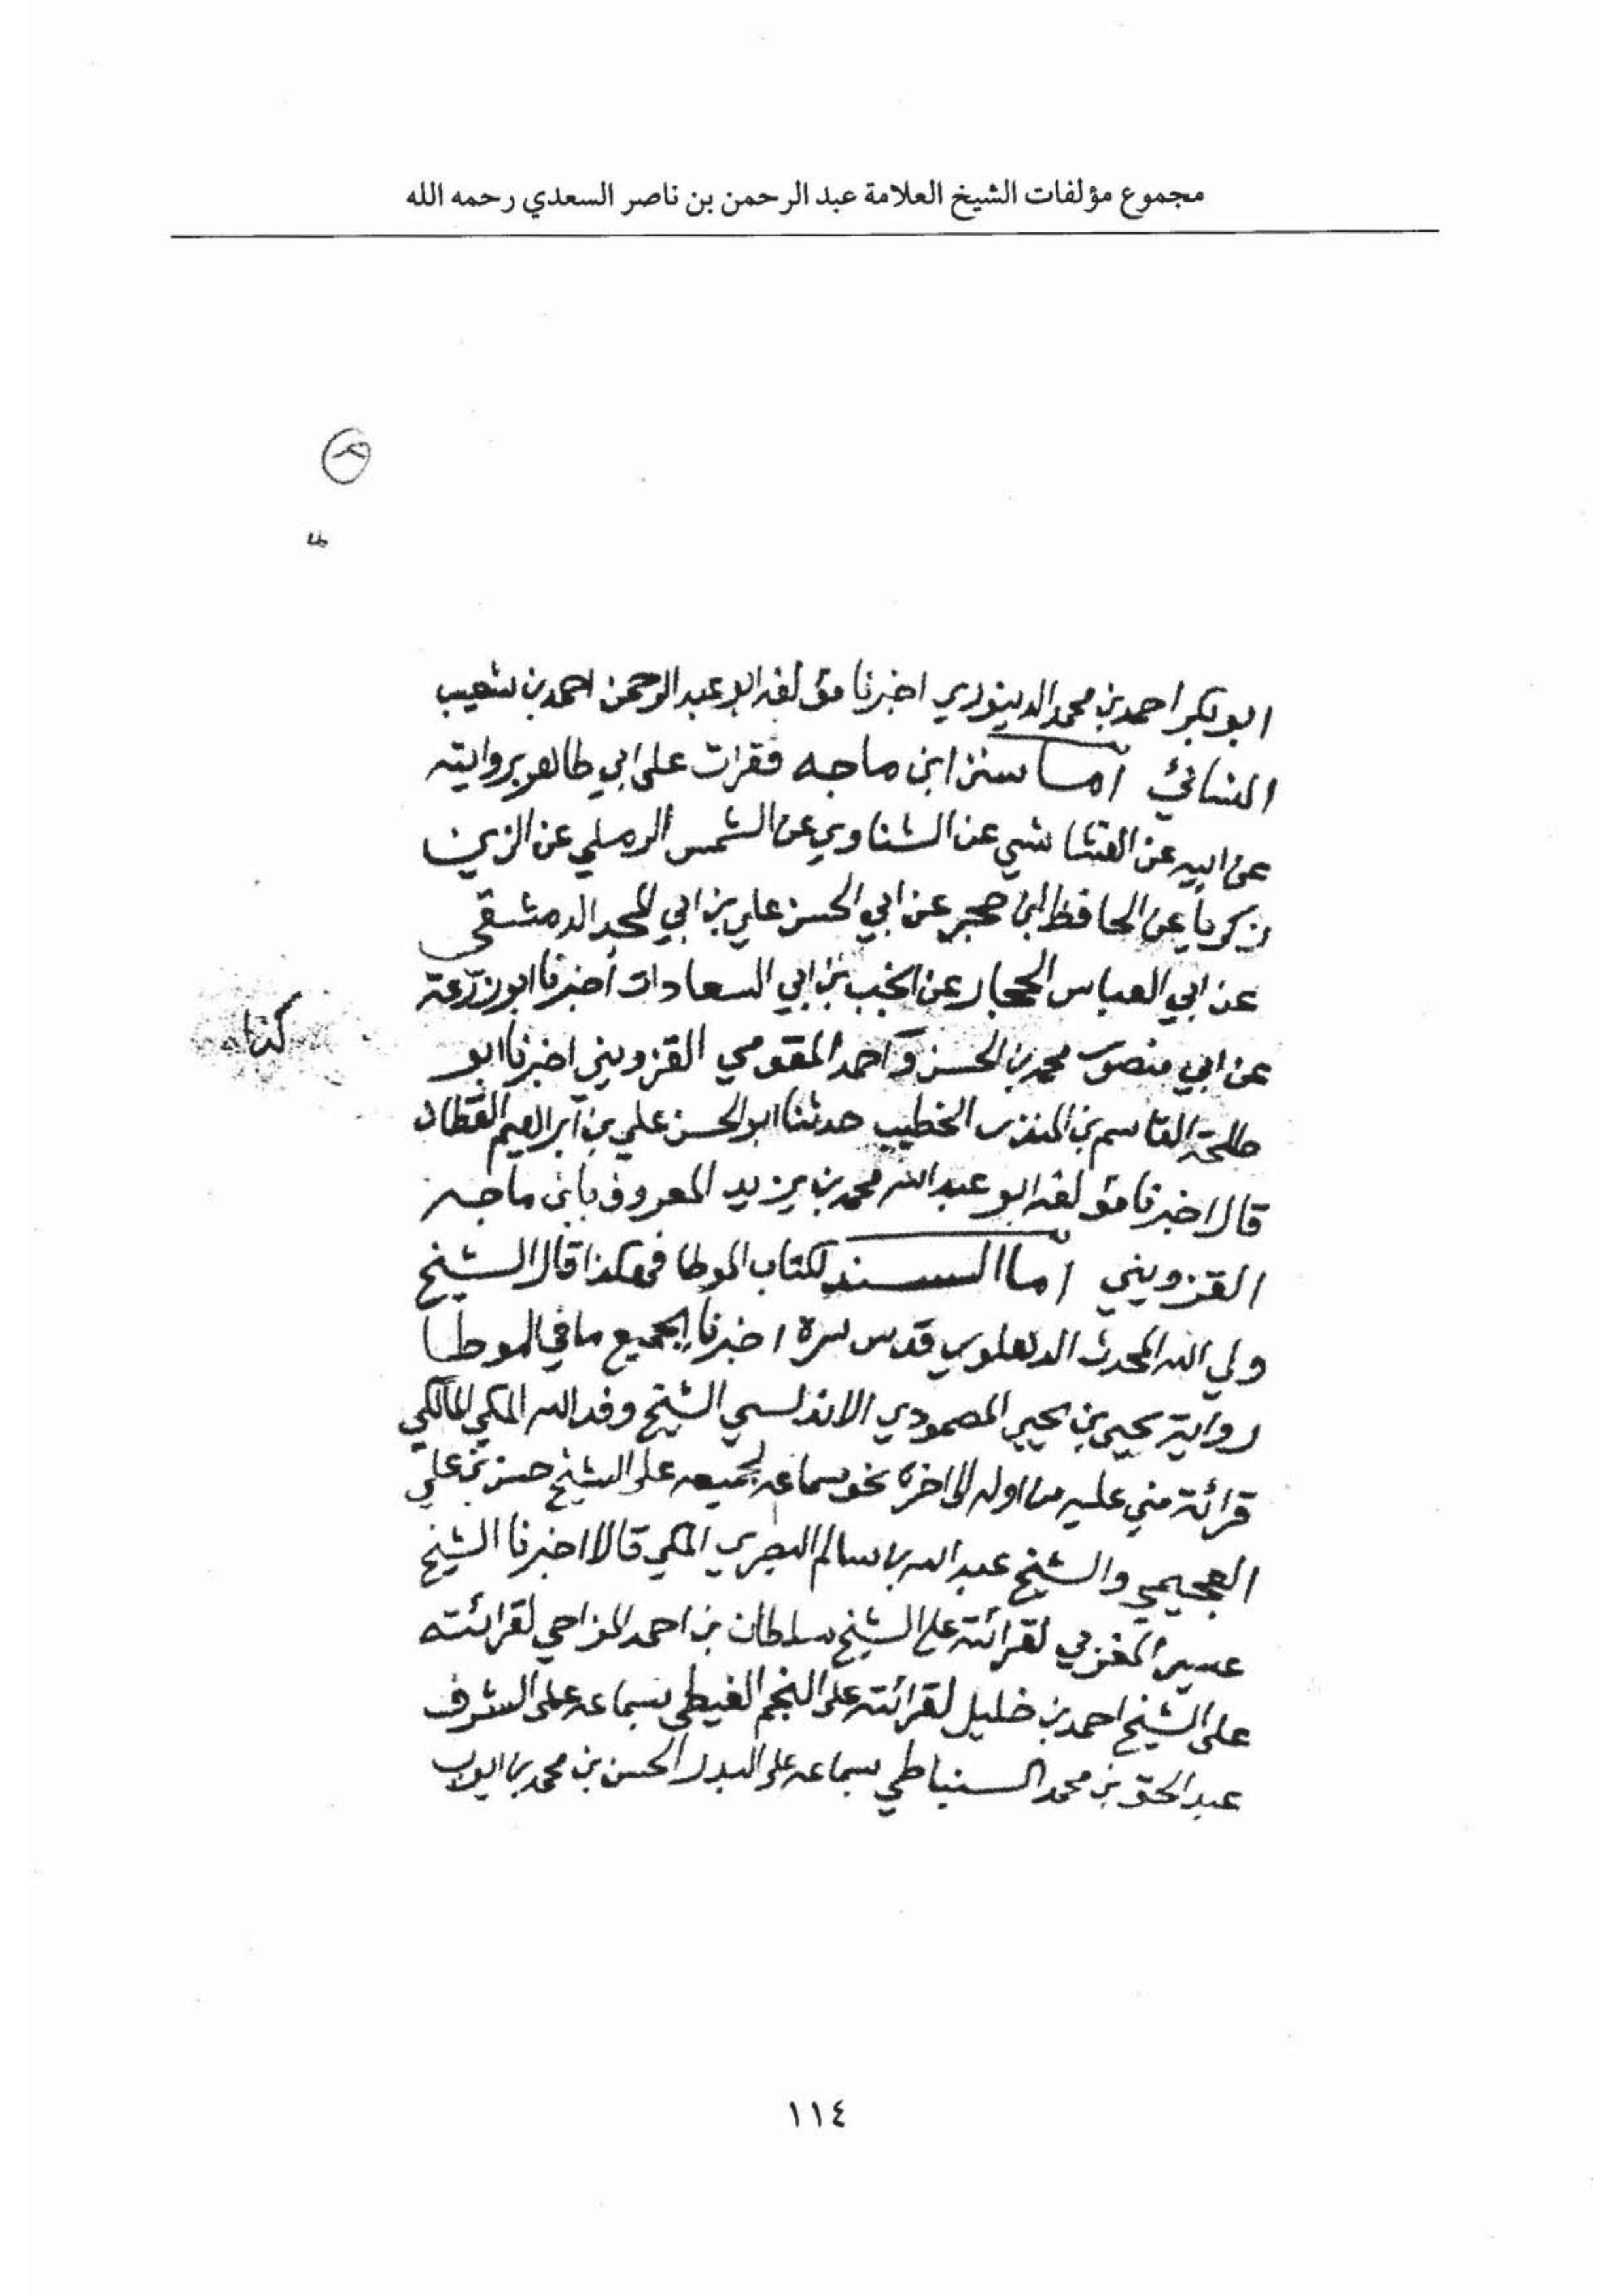 مجموع مؤلفات الشيخ العلامة عبد الرحمن بن ناصر السعدي رحمه الله
ابو بكر احمد بن محمد الدينوري اخبرنا مؤلفه ابو عبد الرحمن احمد بن شعيب
النسائي اما سنن ابن ماجه فقرات على ابي طاهر بروايته
عن ابيه عن القشاشي عن الشناوي عن الشمس الرملي عن الزين
زكريا عن الحافظ ابن حجر عن ابي الحسن علي بن ابي المجد الدمشقي
عن ابي العباس الحجار عن انجب بن ابي السعادات أخبرنا ابو زرعة
كذا
عن ابي منصور محمد بن الحسن واحمد المقومي القزويني اخبرنا ابو
طلحة القاسم بن المنذر الخطيب حدثنا ابو الحسن علي بن ابراهيم القطان
قال اخبرنا مؤلفه ابو عبد الله محمد بن يزيد المعروف بابن ماجه
القزويني اما السند لكتاب الموطا فهكذا قال الشيخ
ولي الله المحدث الدهلوي قدس سره اخبرنا بجميع ما في الموطا
رواية يحيى بن يحيى المصمودي الاندلسي الشيخ وفد الله المكي المالكي
قرائة مني عليه من اوله الى اخره نحو سماعه لجميعه على الشيخ حسن بن علي
العجيمي والشيخ عبد الله بن سالم البصري المكي قالا اخبرنا الشيخ
عيسى المغربي لقرائته على الشيخ سلطان بن احمد المزاحي لقرائته
على الشيخ احمد بن خليل لقرائته على النجم الغيطي بسماعه على الشرف
عبد الحق بن محمد السنباطي بسماعه على البدر الحسن بن محمد بن ايوب
١١٤